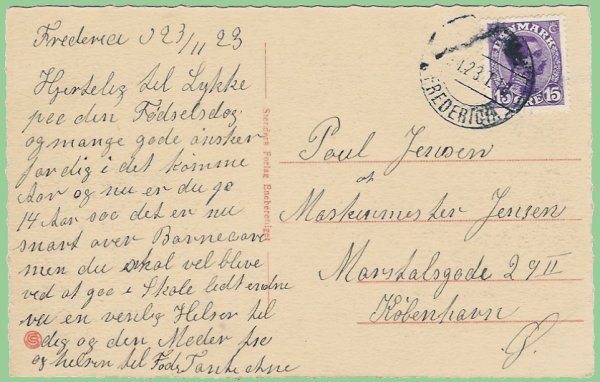 Fredericia d 23/11 23
Hjertelig til Lykke
paa din Fødselsdag
og mange gode ønsker
for dig i det komme
Aar og nu er du jo
14 Aar saa det er nu
snart over Barneaare
men du skal vel blive
ved at gaa i Skole lidt endnu
nu en venlig Hilsen til
dig og din Moder fra
og hilsen til Tante
Stenders Forlag Eneberettiget
DANMARK
15 ØRE 15
FREDERICIA
Poul Jensen
af
Maskinmester Jensen
Marstalsgade 29 II
København
Ø.